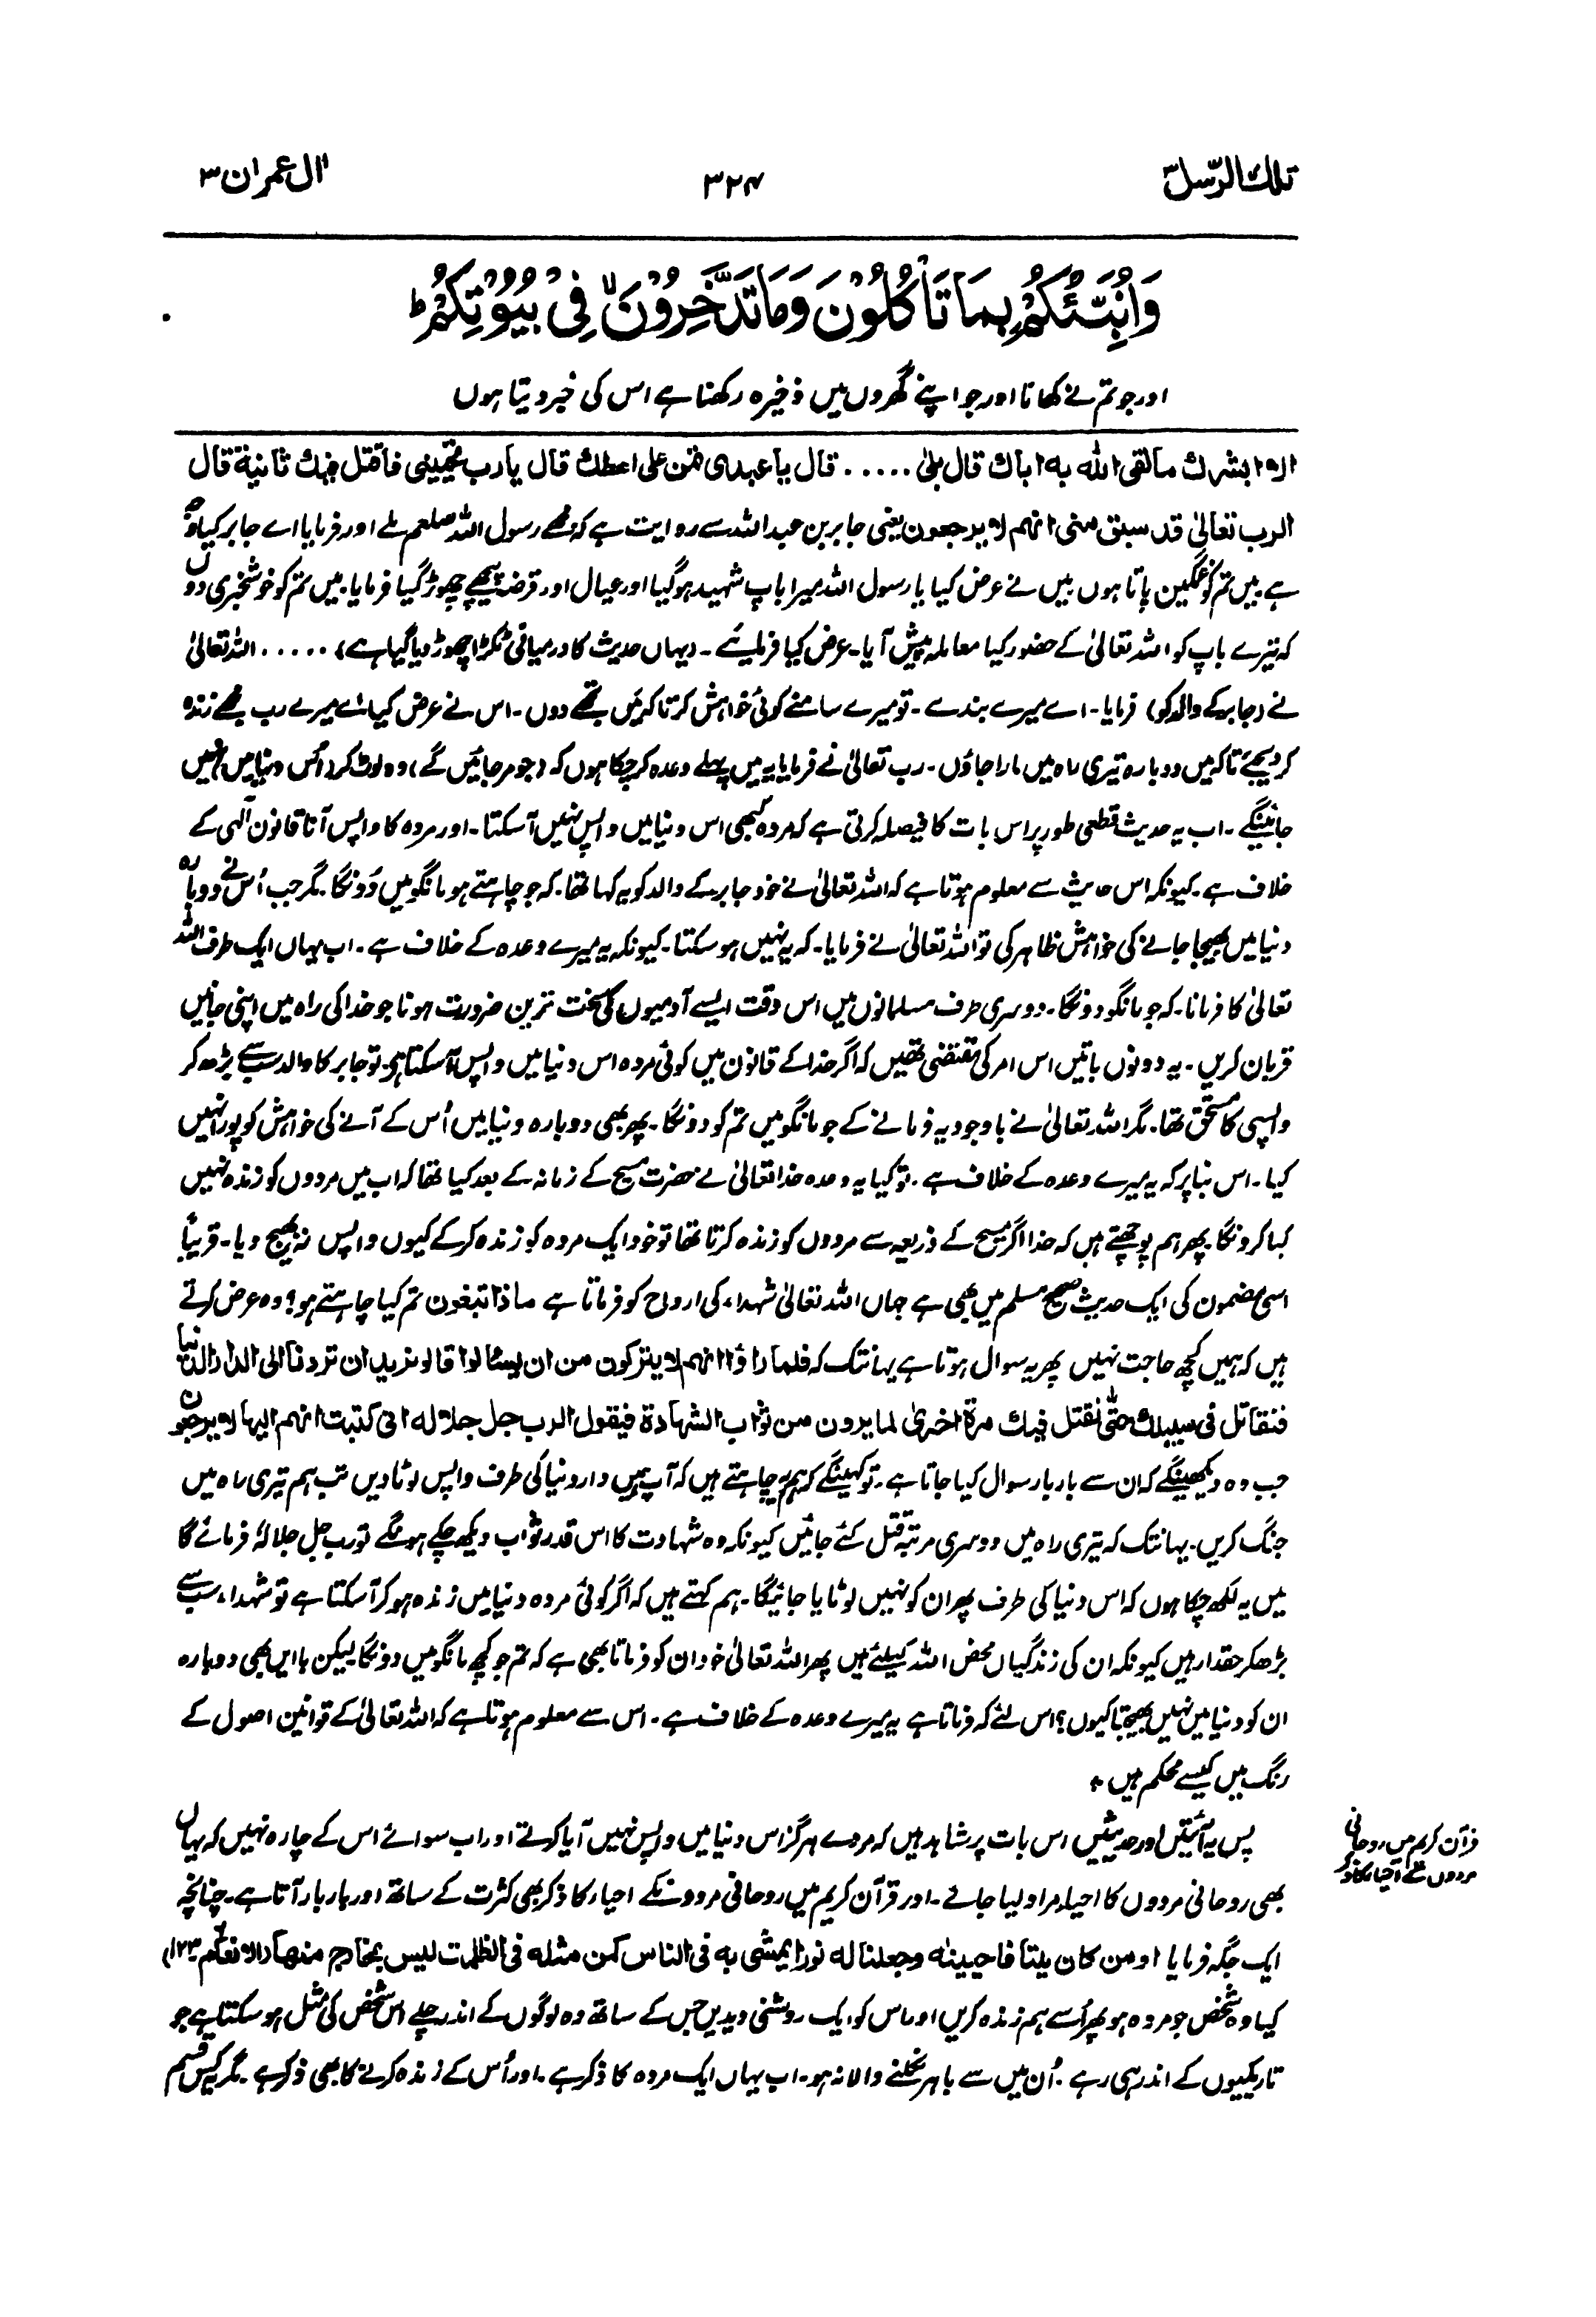 تلك الرّسل ۳
۳۲۴
ال عمران ۳
وَاُنَبِّئُكُمْ بِمَا تَاْكُلُوْنَ وَمَا تَدَّخِرُوْنَ ۙ فِیْ بُیُوْتِكُمْ ؕ
اور جو تم نے کھانا اور جو اپنے گھروں میں ذخیرہ رکھنا ہے اس کی خبر دیتا ہوں
الا ابشرك ما لقی الله به اباك قال بلیٰ ..... قال یا عبدی تمن علی اعطك قال یا رب تحیینی فاقتل فیك ثانیة قال
الرب تعالیٰ قد سبق منی انهم لا یرجعون یعنی جابر بن عبداللہ سے روایت ہے کہ مجھے رسول اللہ صلعم ملے اور فرمایا اے جابر کیا وجہ
ہے میں تم کو غمگین پاتا ہوں میں نے عرض کیا یا رسول اللہ میرا باپ شہید ہو گیا اور عیال اور قرضہ پیچھے چھوڑ گیا فرمایا میں تم کو خوشخبری دوں
کہ تیرے باپ کو اللہ تعالیٰ کے حضور کیا معاملہ پیش آیا۔ عرض کیا فرمایئے۔ (یہاں حدیث کا درمیانی ٹکڑا چھوڑ دیا گیا ہے) ..... اللہ تعالیٰ
نے (جابر کے والد کو) فرمایا۔ اے میرے بندے۔ تو میرے سامنے کوئی خواہش کر تا کہ میں تجھے دوں۔ اس نے عرض کیا اے میرے رب مجھے زندہ
کر دیجئے تا کہ میں دوبارہ تیری راہ میں مارا جاؤں۔ رب تعالیٰ نے فرمایا یہ میں پہلے وعدہ کر چکا ہوں کہ (جو مر جائیں گے) وہ لوٹ کر (اُس دنیا میں) نہیں
جائینگے۔ اب یہ حدیث قطعی طور پر اس بات کا فیصلہ کرتی ہے کہ مردہ کبھی اس دنیا میں واپس نہیں آ سکتا۔ اور مردہ کا واپس آنا قانون الٰہی کے
خلاف ہے۔ کیونکہ اس حدیث سے معلوم ہوتا ہے کہ اللہ تعالیٰ نے خود جابر کے والد کو یہ کہا تھا۔ کہ جو چاہتے ہو مانگو میں دُونگا۔ مگر جب اُس نے دوبارہ
دنیا میں بھیجا جانے کی خواہش ظاہر کی تو اللہ تعالیٰ نے فرمایا۔ کہ یہ نہیں ہو سکتا۔ کیونکہ یہ میرے وعدہ کے خلاف ہے۔ اب یہاں ایک طرف اللہ
تعالیٰ کا فرمانا۔ کہ جو مانگو دونگا۔ دوسری طرف مسلمانوں میں اس وقت ایسے آدمیوں کی سخت ترین ضرورت ہونا جو خدا کی راہ میں اپنی جانیں
قربان کریں۔ یہ دونوں باتیں اس امر کی مقتضی تھیں کہ اگر خدا کے قانون میں کوئی مردہ اس دنیا میں واپس آ سکتا ہو تو جابر کا والد سب سے بڑھ کر
واپسی کا مستحق تھا۔ مگر اللہ تعالیٰ نے باوجود یہ فرمانے کے جو مانگو میں تم کو دونگا۔ پھر بھی دوبارہ دنیا میں اُس کے آنے کی خواہش کو پورا نہیں
کیا۔ اس بنا پر کہ یہ میرے وعدہ کے خلاف ہے۔ تو کیا یہ وعدہ خدا تعالیٰ نے حضرت مسیح کے زمانہ کے بعد کیا تھا کہ اب میں مردوں کو زندہ نہیں
کیا کرونگا۔ پھر ہم پوچھتے ہیں کہ خدا اگر مسیح کے ذریعہ سے مردوں کو زندہ کرتا تھا تو خود ایک مردہ کو زندہ کر کے کیوں واپس نہ بھیج دیا۔ قریباً
اسی مضمون کی ایک حدیث صحیح مسلم میں بھی ہے جہاں اللہ تعالیٰ شہداء کی ارواح کو فرماتا ہے ماذا تبغون تم کیا چاہتے ہو؟ وہ عرض کرتے
ہیں کہ ہمیں کچھ حاجت نہیں پھر یہ سوال ہوتا ہے یہانتک کہ فلما راؤا انهم لا یترکون من ان یسئالوا قالوا نرید ان تردنا الی الدار الدنیا
فنقاتل فی سبیلك حتّٰی نقتل فیك مرة اخریٰ لما یرون من ثواب الشهادة فیقول الرب جل جلاله انی کتبت انهم الیها لا یرجعون
جب وہ دیکھینگے کہ ان سے بار بار سوال کیا جاتا ہے۔ تو کہینگے کہ ہم یہ چاہتے ہیں کہ آپ ہمیں دار دنیا کی طرف واپس لوٹا دیں تب ہم تیری راہ میں
جنگ کریں۔ یہانتک کہ تیری راہ میں دوسری مرتبہ قتل کئے جائیں کیونکہ وہ شہادت کا اس قدر ثواب دیکھ چکے ہونگے تو رب جل جلالہٗ فرمائے گا
میں یہ لکھ چکا ہوں کہ اس دنیا کی طرف پھر ان کو نہیں لوٹایا جائیگا۔ ہم کہتے ہیں کہ اگر کوئی مردہ دنیا میں زندہ ہو کر آ سکتا ہے تو شہداء سب سے
بڑھکر حقدار ہیں کیونکہ ان کی زندگیاں محض اللہ کیلئے ہیں پھر اللہ تعالیٰ خود ان کو فرماتا بھی ہے کہ تم جو کچھ مانگو میں دونگا لیکن بایں بھی دوبارہ
ان کو دنیا میں نہیں بھیجتا کیوں؟ اس لئے کہ فرماتا ہے یہ میرے وعدہ کے خلاف ہے۔ اس سے معلوم ہوتا ہے کہ اللہ تعالیٰ کے قوانین اصول کے
رنگ میں کیسے محکم ہیں *
پس یہ آیتیں اور حدیثیں اس بات پر شاہد ہیں کہ مردے ہرگز اس دنیا میں واپس نہیں آیا کرتے اور اب سوائے اس کے چارہ نہیں کہ یہاں
قرآن کریم میں روحانی
مردوں کے احیاء کا ذکر
بھی روحانی مردوں کا احیاء مراد لیا جائے۔ اور قرآن کریم میں روحانی مردونکے احیاء کا ذکر بھی کثرت کے ساتھ اور بار بار آتا ہے۔ چنانچہ
ایک جگہ فرمایا او من کان میتا فاحیینٰه وجعلنا له نورا یمشی به فی الناس کمن مثله فی الظلمت لیس بخارج منها (الانعام ۱۲۳)
کیا وہ شخص جو مردہ ہو پھر اُسے ہم زندہ کریں اور اس کو ایک روشنی دیدیں جس کے ساتھ وہ لوگوں کے اندر چلے اس شخص کی مثل ہو سکتا ہے جو
تاریکیوں کے اندر ہی رہے۔ اُن میں سے باہر نکلنے والا نہ ہو۔ اب یہاں ایک مردہ کا ذکر ہے۔ اور اُس کے زندہ کرنے کا بھی ذکر ہے۔ مگر یہ کس قسم